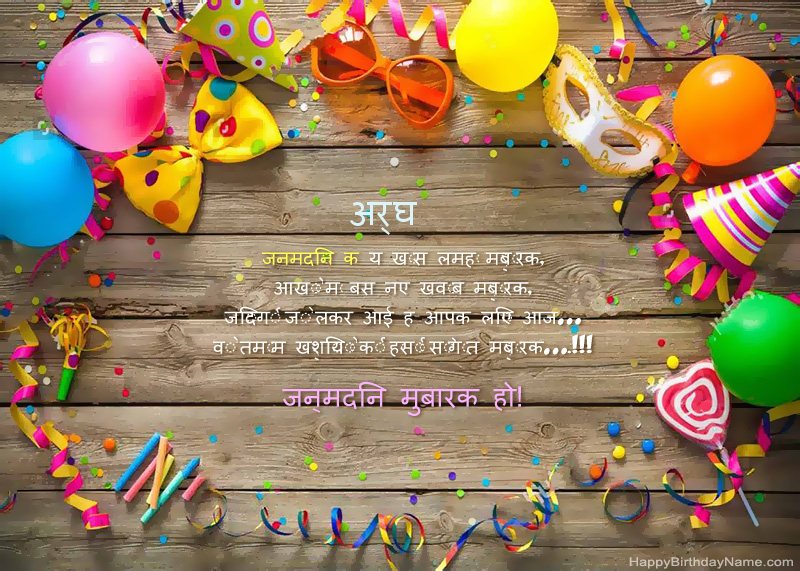 अर्घ
जनमदनि क य खास लमह मबारक,
आख म बस नए खवाब मबारक,
जदिग ज लकर आई ह आपक लएि आज...
व तमाम खशयि क हस सगात मबारक...!!!
जन्मदनि मुबारक हो!
HappyBirthdayName.com